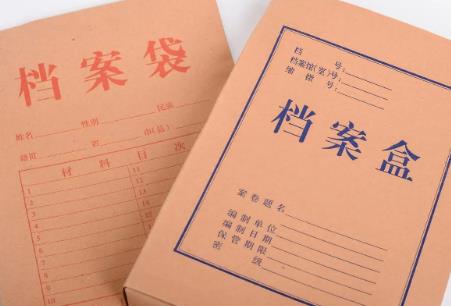 档案袋
姓名 性别 民族
籍贯 省 市(县)
材料目次
1 11
2 12
3 13
4 14
5 15
6
7
8
9
10
档 号：
档案馆(室)号：
缩微号：
档案盒
案卷题名
编制单位
编制日期
保管期限
密 级